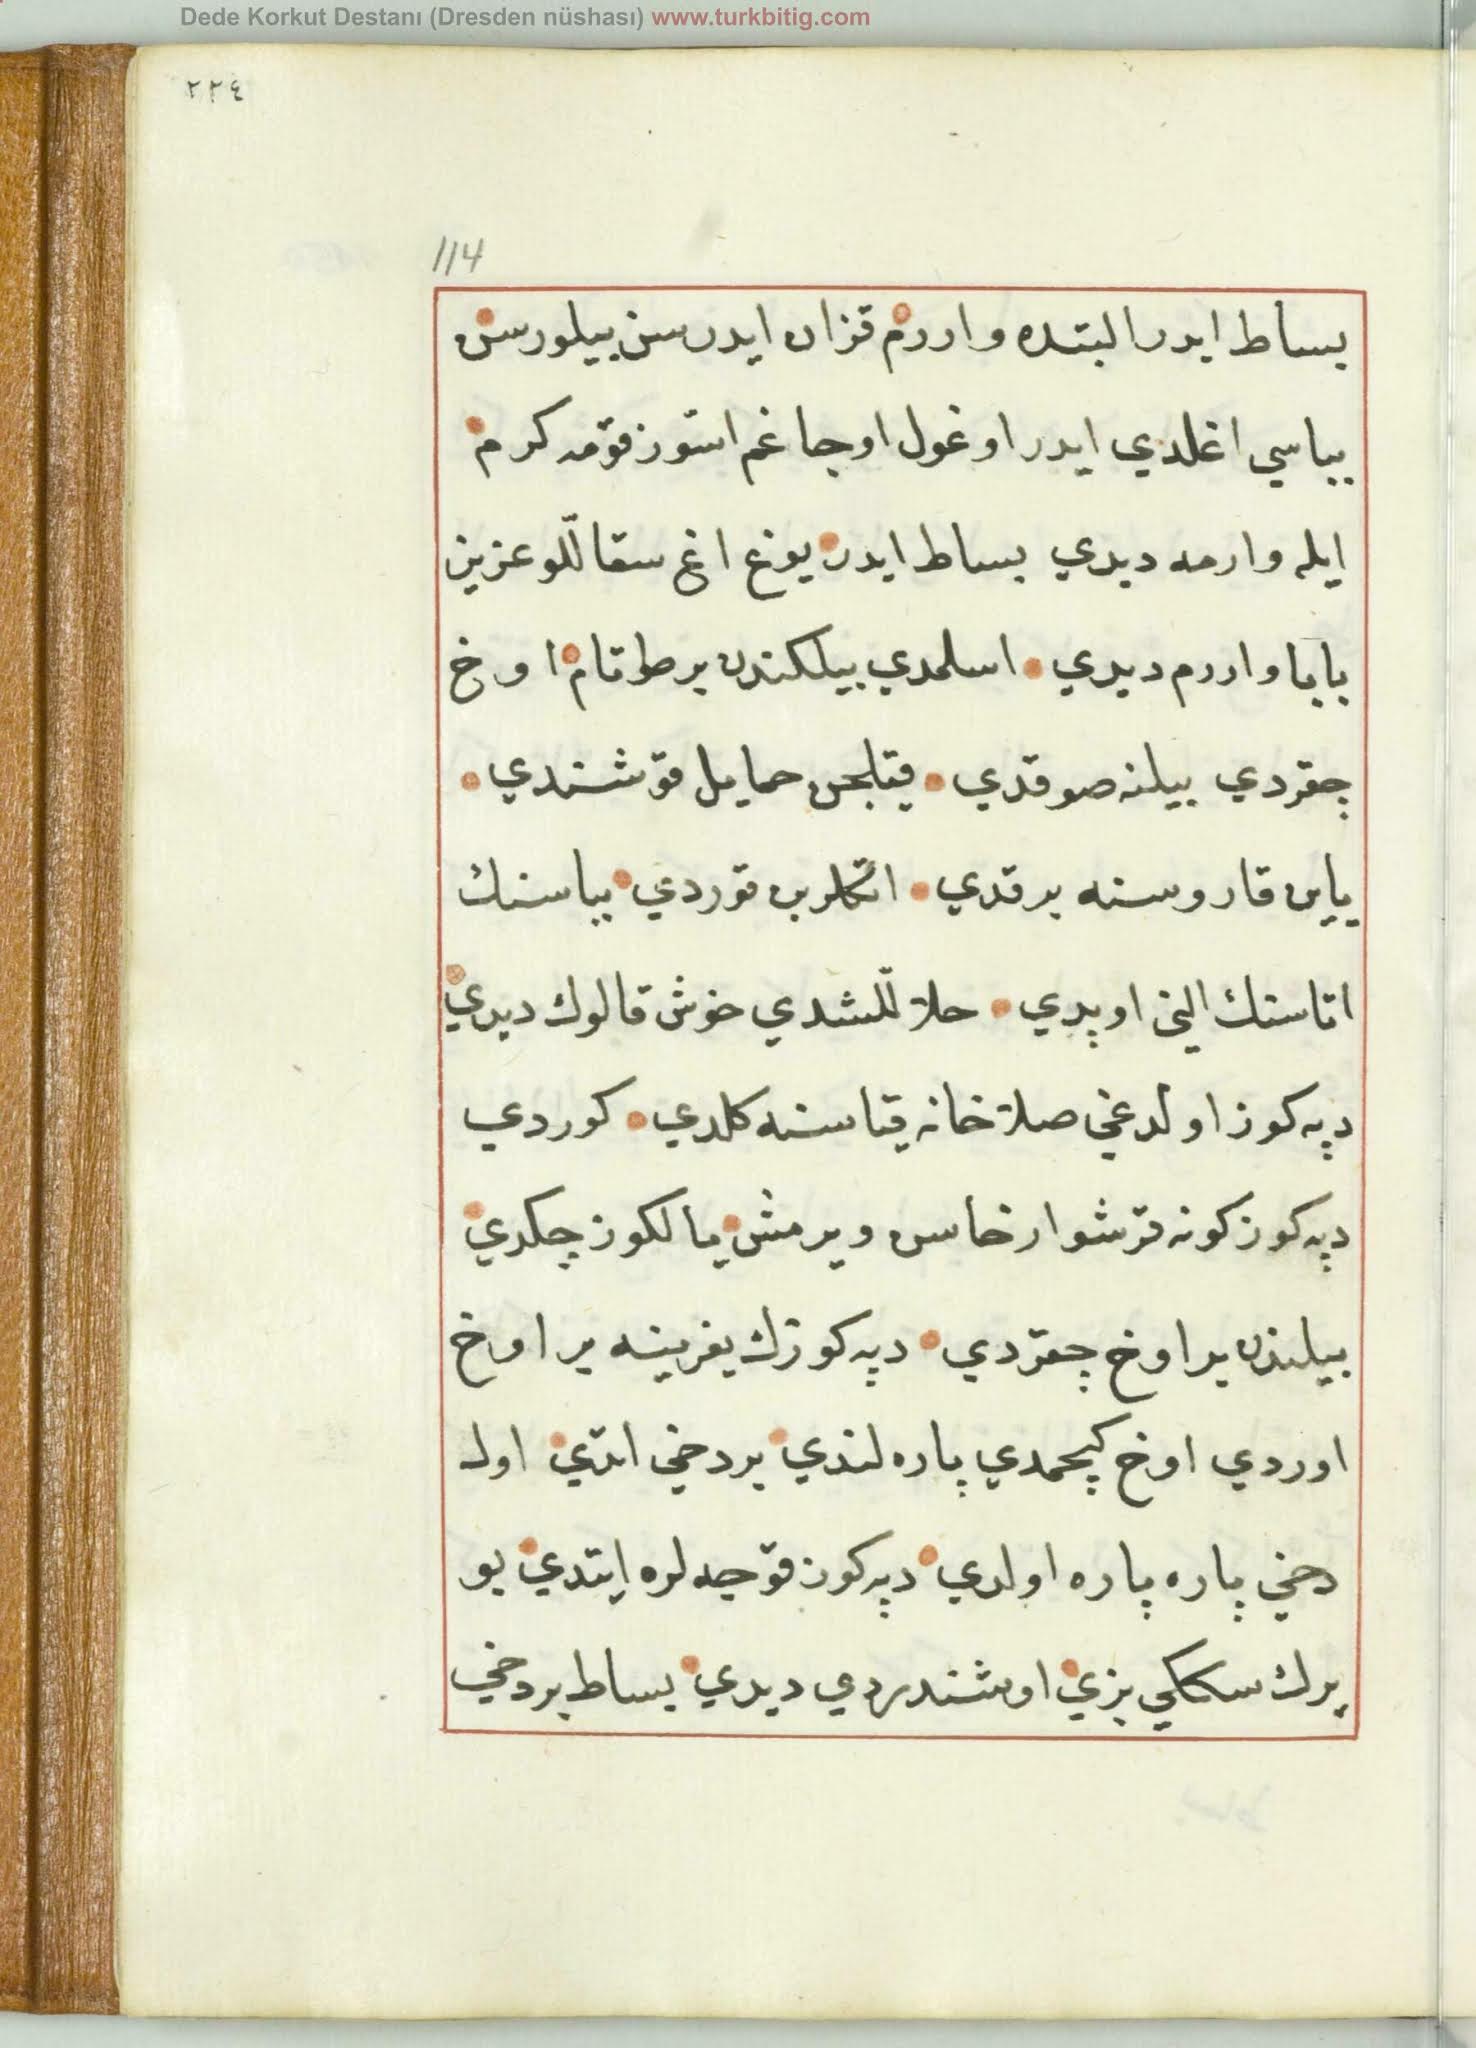 Dede Korkut Destanı (Dresden nüshası) www.turkbitig.com
٢٢٤
114
بساط ايدر البتده واررم قزان ايدر سن بيلورسن
بباسي اغلدي ايدر اوغول اوجاغم استوز قومه كرم
ايله وارمه ديدي بساط ايدر يوغ اغ سقاللّو عزيز
بابا واررم ديدي اسلمدي بيلكندن بر طتام اوخ
چقردي بيلنه صوقدي قيلجن حمايل قوشندي
ياين قاروسنه برقدي اتكلرين قوردي بباسنك
اتاسنك الينى اوپدي حلاللّشدي خوش قالوك ديدي
دپه كوز اولدغي صلاخانه قياسنه كلدي كوردي
دپه كوز كونه قرشو ارخاسن ويرمش يالكوز چكدي
بيلندن بر اوخ چقردي دپه كوزك يغرينه بر اوخ
اوردي اوخ كچمدي پاره لندي بر دخي اتدي اول
دخي پاره پاره اولدي دپه كوز قوجه لره ايتدي بو
يرك سككي بزي اوشندردي ديدي بساط بر دخي